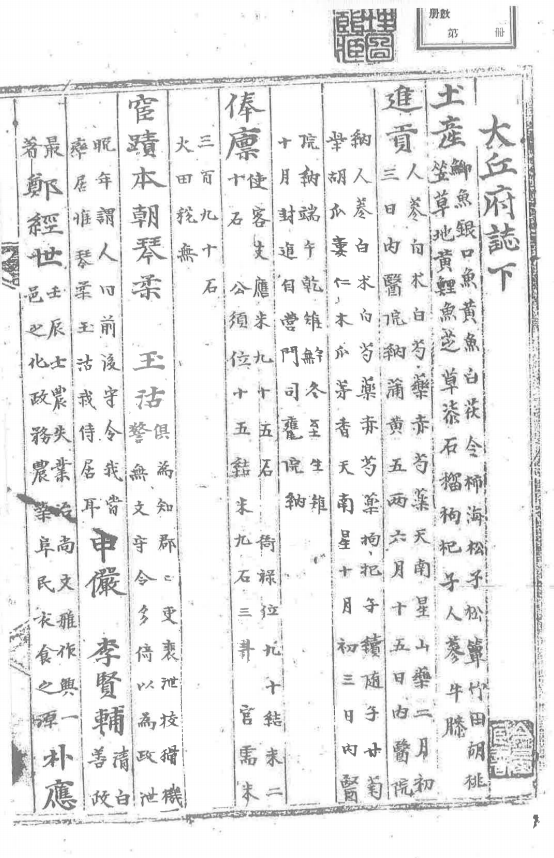 册數
第 冊
大丘府誌下
土産 鯽魚銀口魚黃魚白茯令柿海松子松蕈竹田胡桃
笠草地黃鯉魚芝草漆石榴枸杞子人蔘牛膝
進貢 人蔘白朮白芍藥赤芍藥天南星山藥二月初
三日內醫院納蒲黃五兩六月十五日內醫院
納人蔘白朮白芍藥赤芍藥枸杞子續随子甘菊
胡瓜蔞仁木瓜茅香天南星十月初三日內醫
院納端午乾雉冬至生雉
十月封進自營門司甕院納
俸廩 使客支應米九十五石 衙祿位九十結米二
十石 公須位十五結米九石三斗 官需米
三百九十石
火田稅無
宦蹟本朝琴柔 玉沽 俱為知郡〻吏裵泄狡猾機
警無文守令多倚以為政泄
晚年謂人曰前後守令我嘗
居惟琴柔玉沽我侍居耳 申儼 李賢輔 清白
善政
最
著 鄭經世 壬辰士農失業治尚文雅作興一
邑之化政務農桑阜民衣食之源 朴應